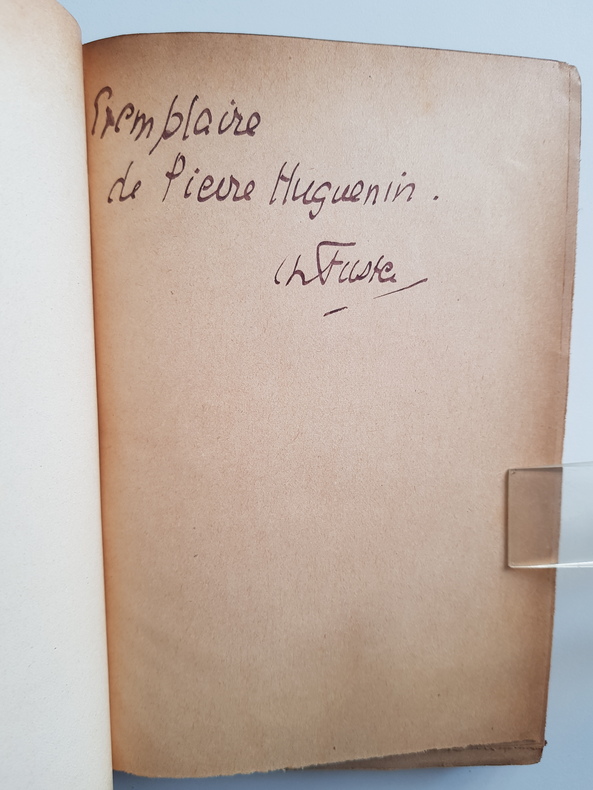 Exemplaire
de Pierre Huguenin.
Ch Fuster